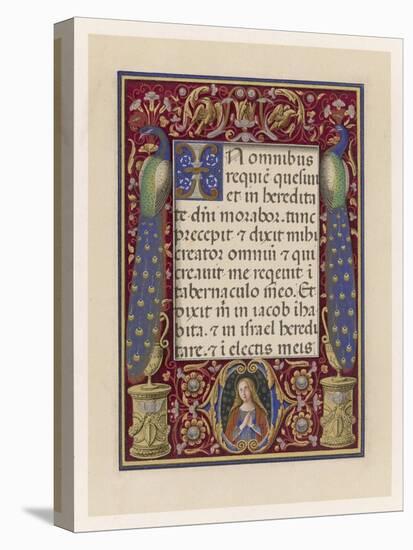 IN omnibus
requiē quesiui
et in heredita
te dñi morabor. tunc
precepit & dixit mihi
creator omniū & qui
creauit me requeuit i
tabernaculo meo. Et
dixit m̄ in iacob iha
bita. & in israel heredi
tare. & i electis meis